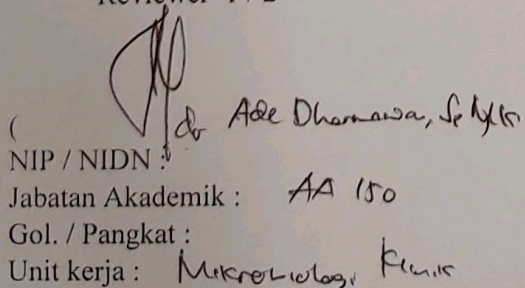 Reviewer
( dr Ade Dharmawan, Sp MK
NIP / NIDN :
Jabatan Akademik : AA 150
Gol. / Pangkat :
Unit kerja : Mikrobiologi Klinik